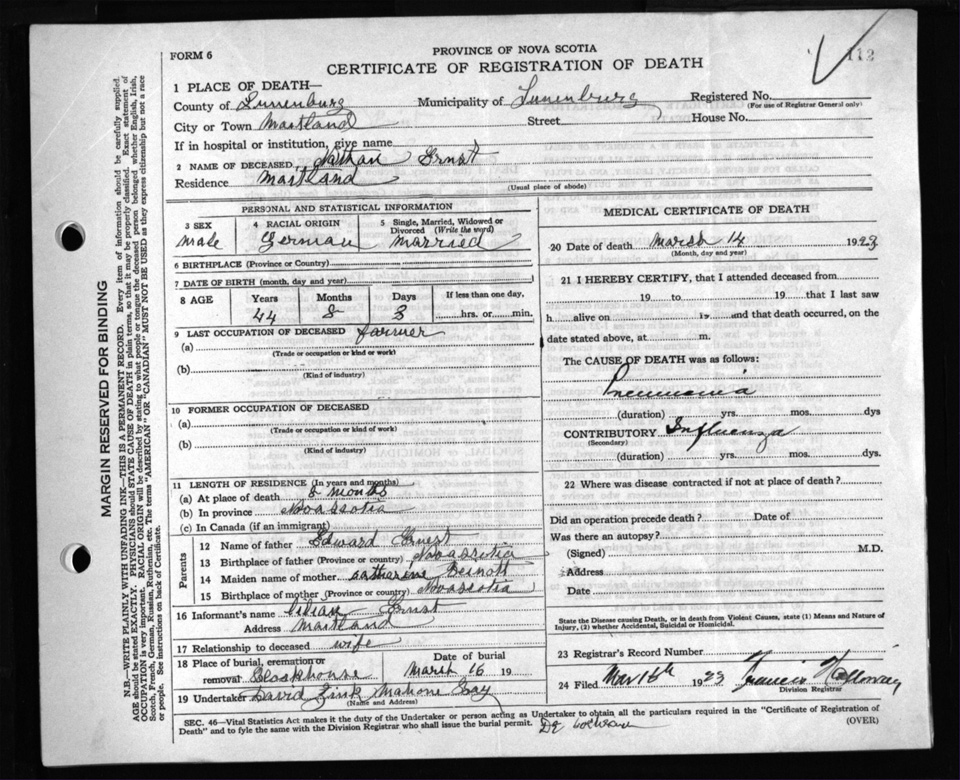 FORM 6
PROVINCE OF NOVA SCOTIA
112
CERTIFICATE OF REGISTRATION OF DEATH
1 PLACE OF DEATH—
County of Lunenburg Municipality of Lunenburg Registered No.
(For use of Registrar General only)
City or Town Maitland Street House No.
If in hospital or institution, give name
2 NAME OF DECEASED Nathan Ernst
Residence Maitland
(Usual place of abode)
PERSONAL AND STATISTICAL INFORMATION
3 SEX 4 RACIAL ORIGIN 5 Single, Married, Widowed or Divorced (Write the word)
male German married
6 BIRTHPLACE (Province or Country)
7 DATE OF BIRTH (month, day and year)
8 AGE Years Months Days If less than one day,
44 8 3 hrs. or min.
9 LAST OCCUPATION OF DECEASED farmer
(a)
(Trade or occupation or kind or work)
(b)
(Kind of industry)
10 FORMER OCCUPATION OF DECEASED
(a)
(Trade or occupation or kind or work)
(b)
(Kind of industry)
11 LENGTH OF RESIDENCE (In years and months)
(a) At place of death months
(b) In province Novascotia
(c) In Canada (if an immigrant)
Parents
12 Name of father Edward Ernest
13 Birthplace of father (Province or country) Novascotia
14 Maiden name of mother
15 Birthplace of mother (Province or country) Novascotia
16 Informant's name Lilian Ernst
Address Maitland
17 Relationship to deceased wife
18 Place of burial, cremation or removal Blockhouse Date of burial March 16 19
19 Undertaker David Zink Mahone Bay
(Name and Address)
MEDICAL CERTIFICATE OF DEATH
20 Date of death March 14 1923
(Month, day and year)
21 I HEREBY CERTIFY, that I attended deceased from
19 to 19 that I last saw
h alive on 19 and that death occurred, on
date stated above, at m.
The CAUSE OF DEATH was as follows:
Pneumonia
(duration) yrs. mos. dys
CONTRIBUTORY Influenza
(Secondary)
(duration) yrs. mos. dys.
22 Where was disease contracted if not at place of death?
Did an operation precede death? Date of
Was there an autopsy?
(Signed) M.D.
Address
Date
State the Disease causing Death, or in death from Violent Causes, state (1) Means and Nature of
Injury, (2) whether Accidental, Suicidal or Homicidal.
23 Registrar's Record Number
24 Filed Mar 16th 1923 Francis
Division Registrar
SEC. 46—Vital Statistics Act makes it the duty of the Undertaker or person acting as Undertaker to obtain all the particulars required in the "Certificate of Registration of
Death" and to fyle the same with the Division Registrar who shall issue the burial permit. Dr
(OVER)
MARGIN RESERVED FOR BINDING
N.B.—WRITE PLAINLY WITH UNFADING INK—THIS IS A PERMANENT RECORD. Every item of information should be carefully supplied.
AGE should be stated EXACTLY. PHYSICIANS should STATE CAUSE OF DEATH in plain terms, so that it may be properly classified. Exact statement of
OCCUPATION is very important. RACIAL ORIGIN will be described by stating to what people or tongue the deceased person belonged, whether English, Irish,
Scotch, French, German, Russian, Ruthenian, etc. The terms "AMERICAN" OR "CANADIAN" MUST NOT BE USED as they express citizenship but not a race
or people. See instructions on back of Certificate.